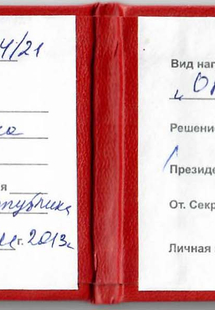 4/21
на
я
публика
г. 2013г.
Вид наг
„ О
Решение
Президе
От. Секр
Личная